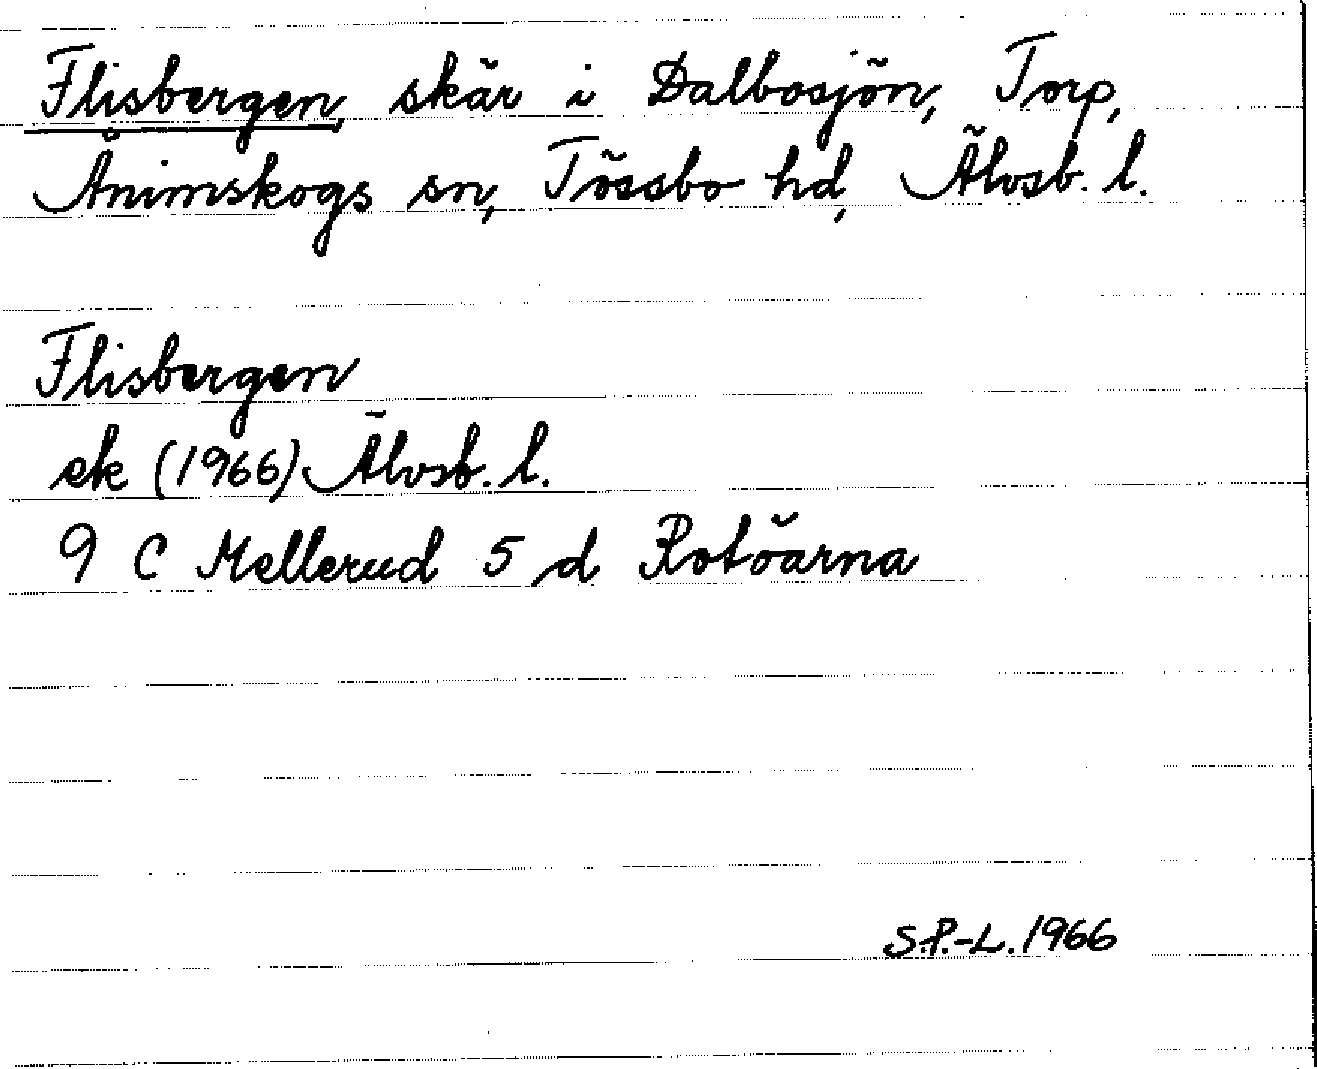 Flisbergen, skär i Dalbosjön, Torp,
Ånimskogs sn, Tössbo hd, Älvsb. l.
Flisbergen
ek (1966) Älvsb. l.
9 C Mellerud 5 d Rotöarna
S.P.-L. 1966